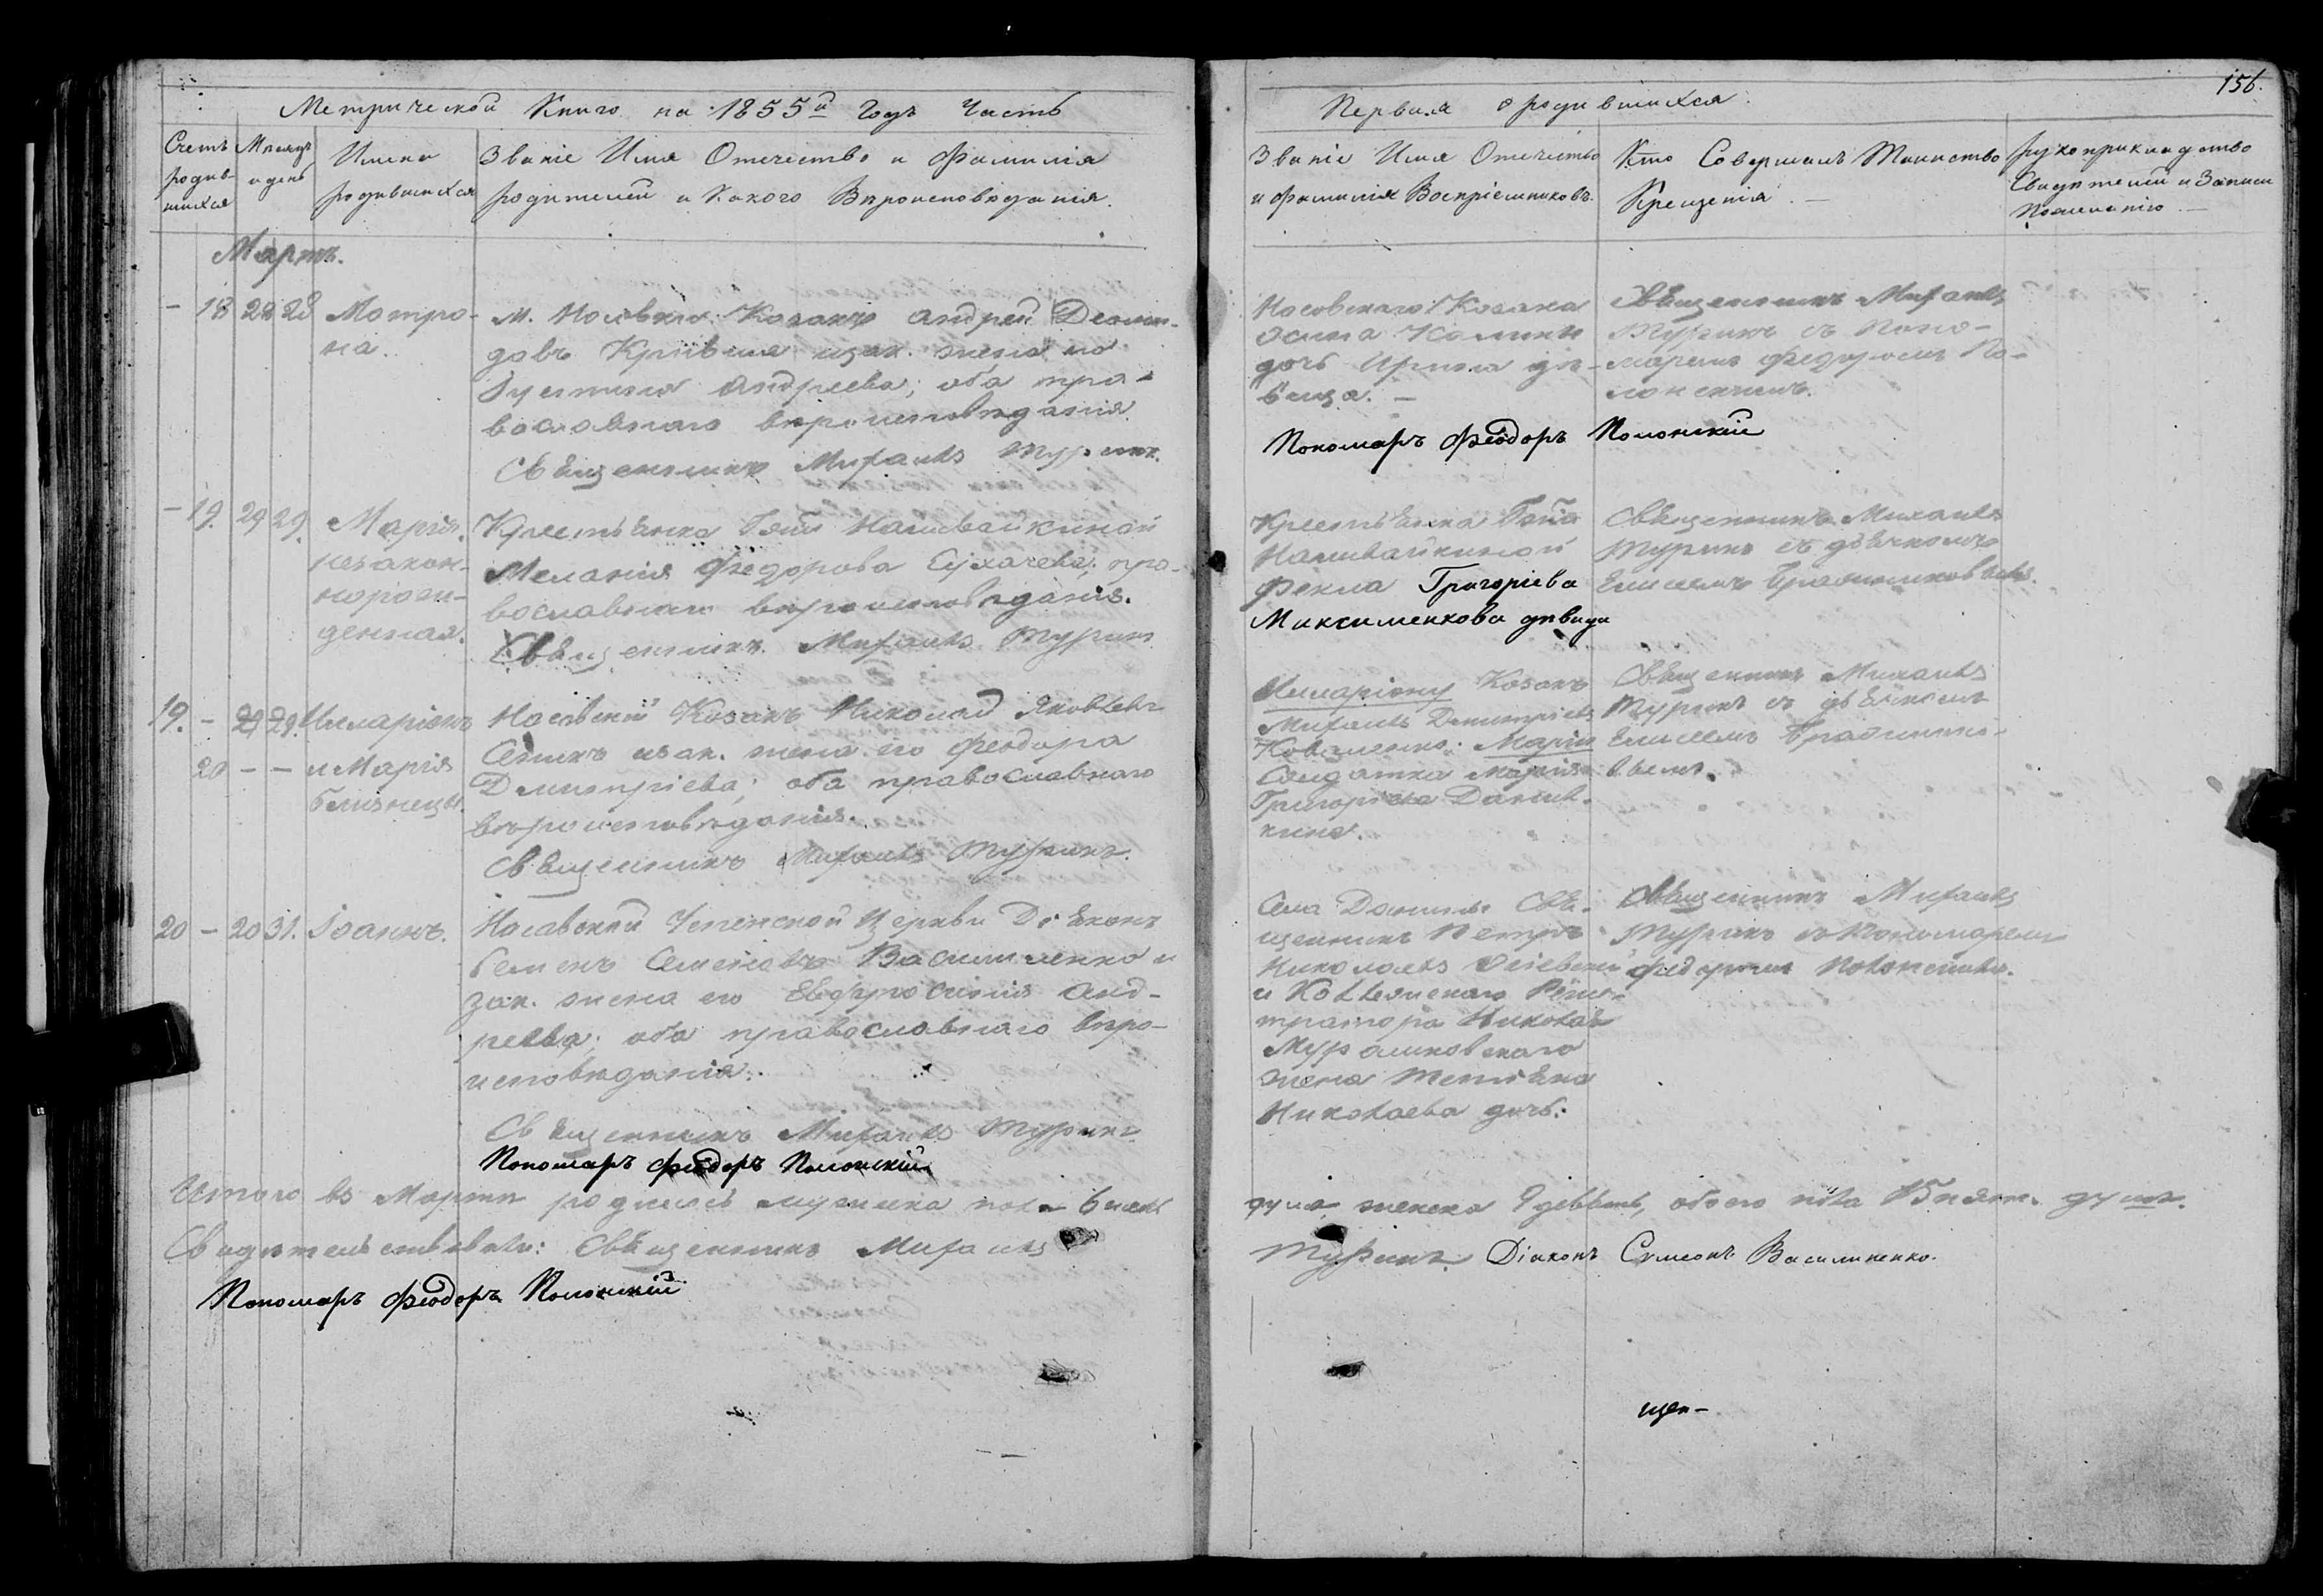 156.
Метрической Книги на 1855й Годъ Часть
Первая о родившихся
Счетъ родив-шихся
Месяцъ и день
Имена родившихся
Званіе Имя Отечество и Фамилія
родителей и Какого Вѣроисповѣданія.
Званіе Имя Отечество
и фамилія Воспріемниковъ.
Кто Совершалъ Таинство
Крещенія. —
рукоприкладство
Свидѣтелей и Записи
по желанію —
Мартъ.
— 18 28 28 Мотро-
на.
м. Носовки Козакъ Андрей
Кривша изак. жена его
Іустина Андреева; оба пра-
вославнаго вѣроисповѣданія
Священникъ Михаилъ Туринъ.
Носовскаго Козака
Осипа
дочь Ирина дѣ-
вица. —
Священникъ Михаилъ
Туринъ съ Поно-
маремъ Федоромъ По-
лонскимъ.
Пономарь Феодоръ Полонскій
— 19. 29 29. Марія
незакон-
норож-
денная.
Крестьянка Наливайкиной
Меланія Федорова Сухачева, пра-
вославнаго вѣроисповѣданія.
Священникъ Михаилъ Туринъ
Крестьянка
Наливайкиной
Фекла Григоріева
Максименкова дѣвица
Священникъ Михаилъ
Туринъ съ дьячкомъ
Елисеемъ
19. — 29 29. Иларіонъ
20 — — и Марія
близнецы.
Носовскій Козакъ Николай Яковлевъ
изак. жена его Феодора
Димитріева; оба православнаго
вѣроисповѣданія.
Священникъ Михаилъ Туринъ.
Иларіону Козакъ
Михаилъ Димитріевъ
Коваленко; Маріи
Солдатка Марія
Григоріева
Священникъ Михаилъ
Туринъ съ дьячкомъ
Елисеемъ
20 — 20 31. Іоаннъ.
Носовской Успенской Церкви Діяконъ
Семенъ Семеновъ Василиненко и
зак. жена его Евфросинія Анд-
реева; оба православнаго вѣро-
исповѣданія.
Священникъ Михаилъ Туринъ
Пономарь Феодоръ Полонскій
Села Свя-
щенникъ Петръ
Николаевъ
и Коллежскаго Реги-
тратора Николая
жена Татіяна
Николаева дочь.
Священникъ Михаилъ
Туринъ съ Пономаремъ
Федоромъ Полонскимъ.
Итого въ Мартѣ родилось мужеска пола 6
душъ женска 9 девять, обоего пола 15 душъ.
Свидѣтельствовали: Священникъ Михаилъ
Туринъ. Діаконъ Сѵмеонъ Василиненко.
Пономарь Феодоръ Полонскій
щен—